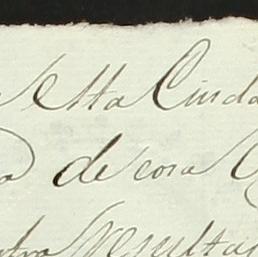 Esta Ciuda
a de cora
tra Resulta